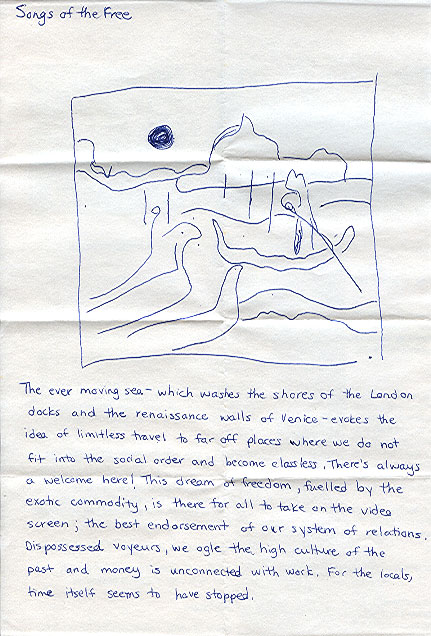 Songs of the Free
The ever moving sea - which washes the shores of the London
docks and the renaissance walls of Venice - evokes the
idea of limitless travel to far off places where we do not
fit into the social order and become classless. There's always
a welcome here! This dream of freedom, fuelled by the
exotic commodity, is there for all to take on the video
screen; the best endorsement of our system of relations.
Dispossessed voyeurs, we ogle the high culture of the
past and money is unconnected with work. For the locals,
time itself seems to have stopped.